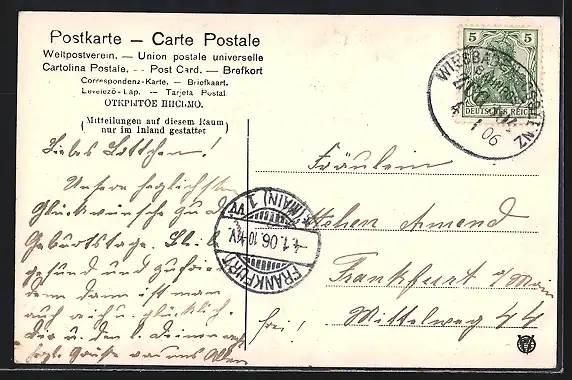 Postkarte — Carte Postale
Weltpostverein. — Union postale universelle
Cartolina Postale. -- Post Card. — Brefkort
Correspondenz-Karte. — Briefkaart.
Levelező-Lap. — Tarjeta Postal.
ОТКРЫТОЕ ПИСЬМО.
(Mitteilungen auf diesem Raum
nur im Inland gestattet)
5 5
DEUTSCHES REICH
1 06
FRANKFURT (MAIN) 1
4.1.06.10-11V.
Liebes Lottchen!
Unsere herzlichsten
Glückwünsche zu d.
Geburtstage. Bleib
gesund und zufrieden
denn dann ist man
auch reich u. glücklich.
Dir u. den l. Deinen
Grüße von uns Allen
Fräulein
Amend
Frankfurt a/Main
Mittelweg 44
frei!